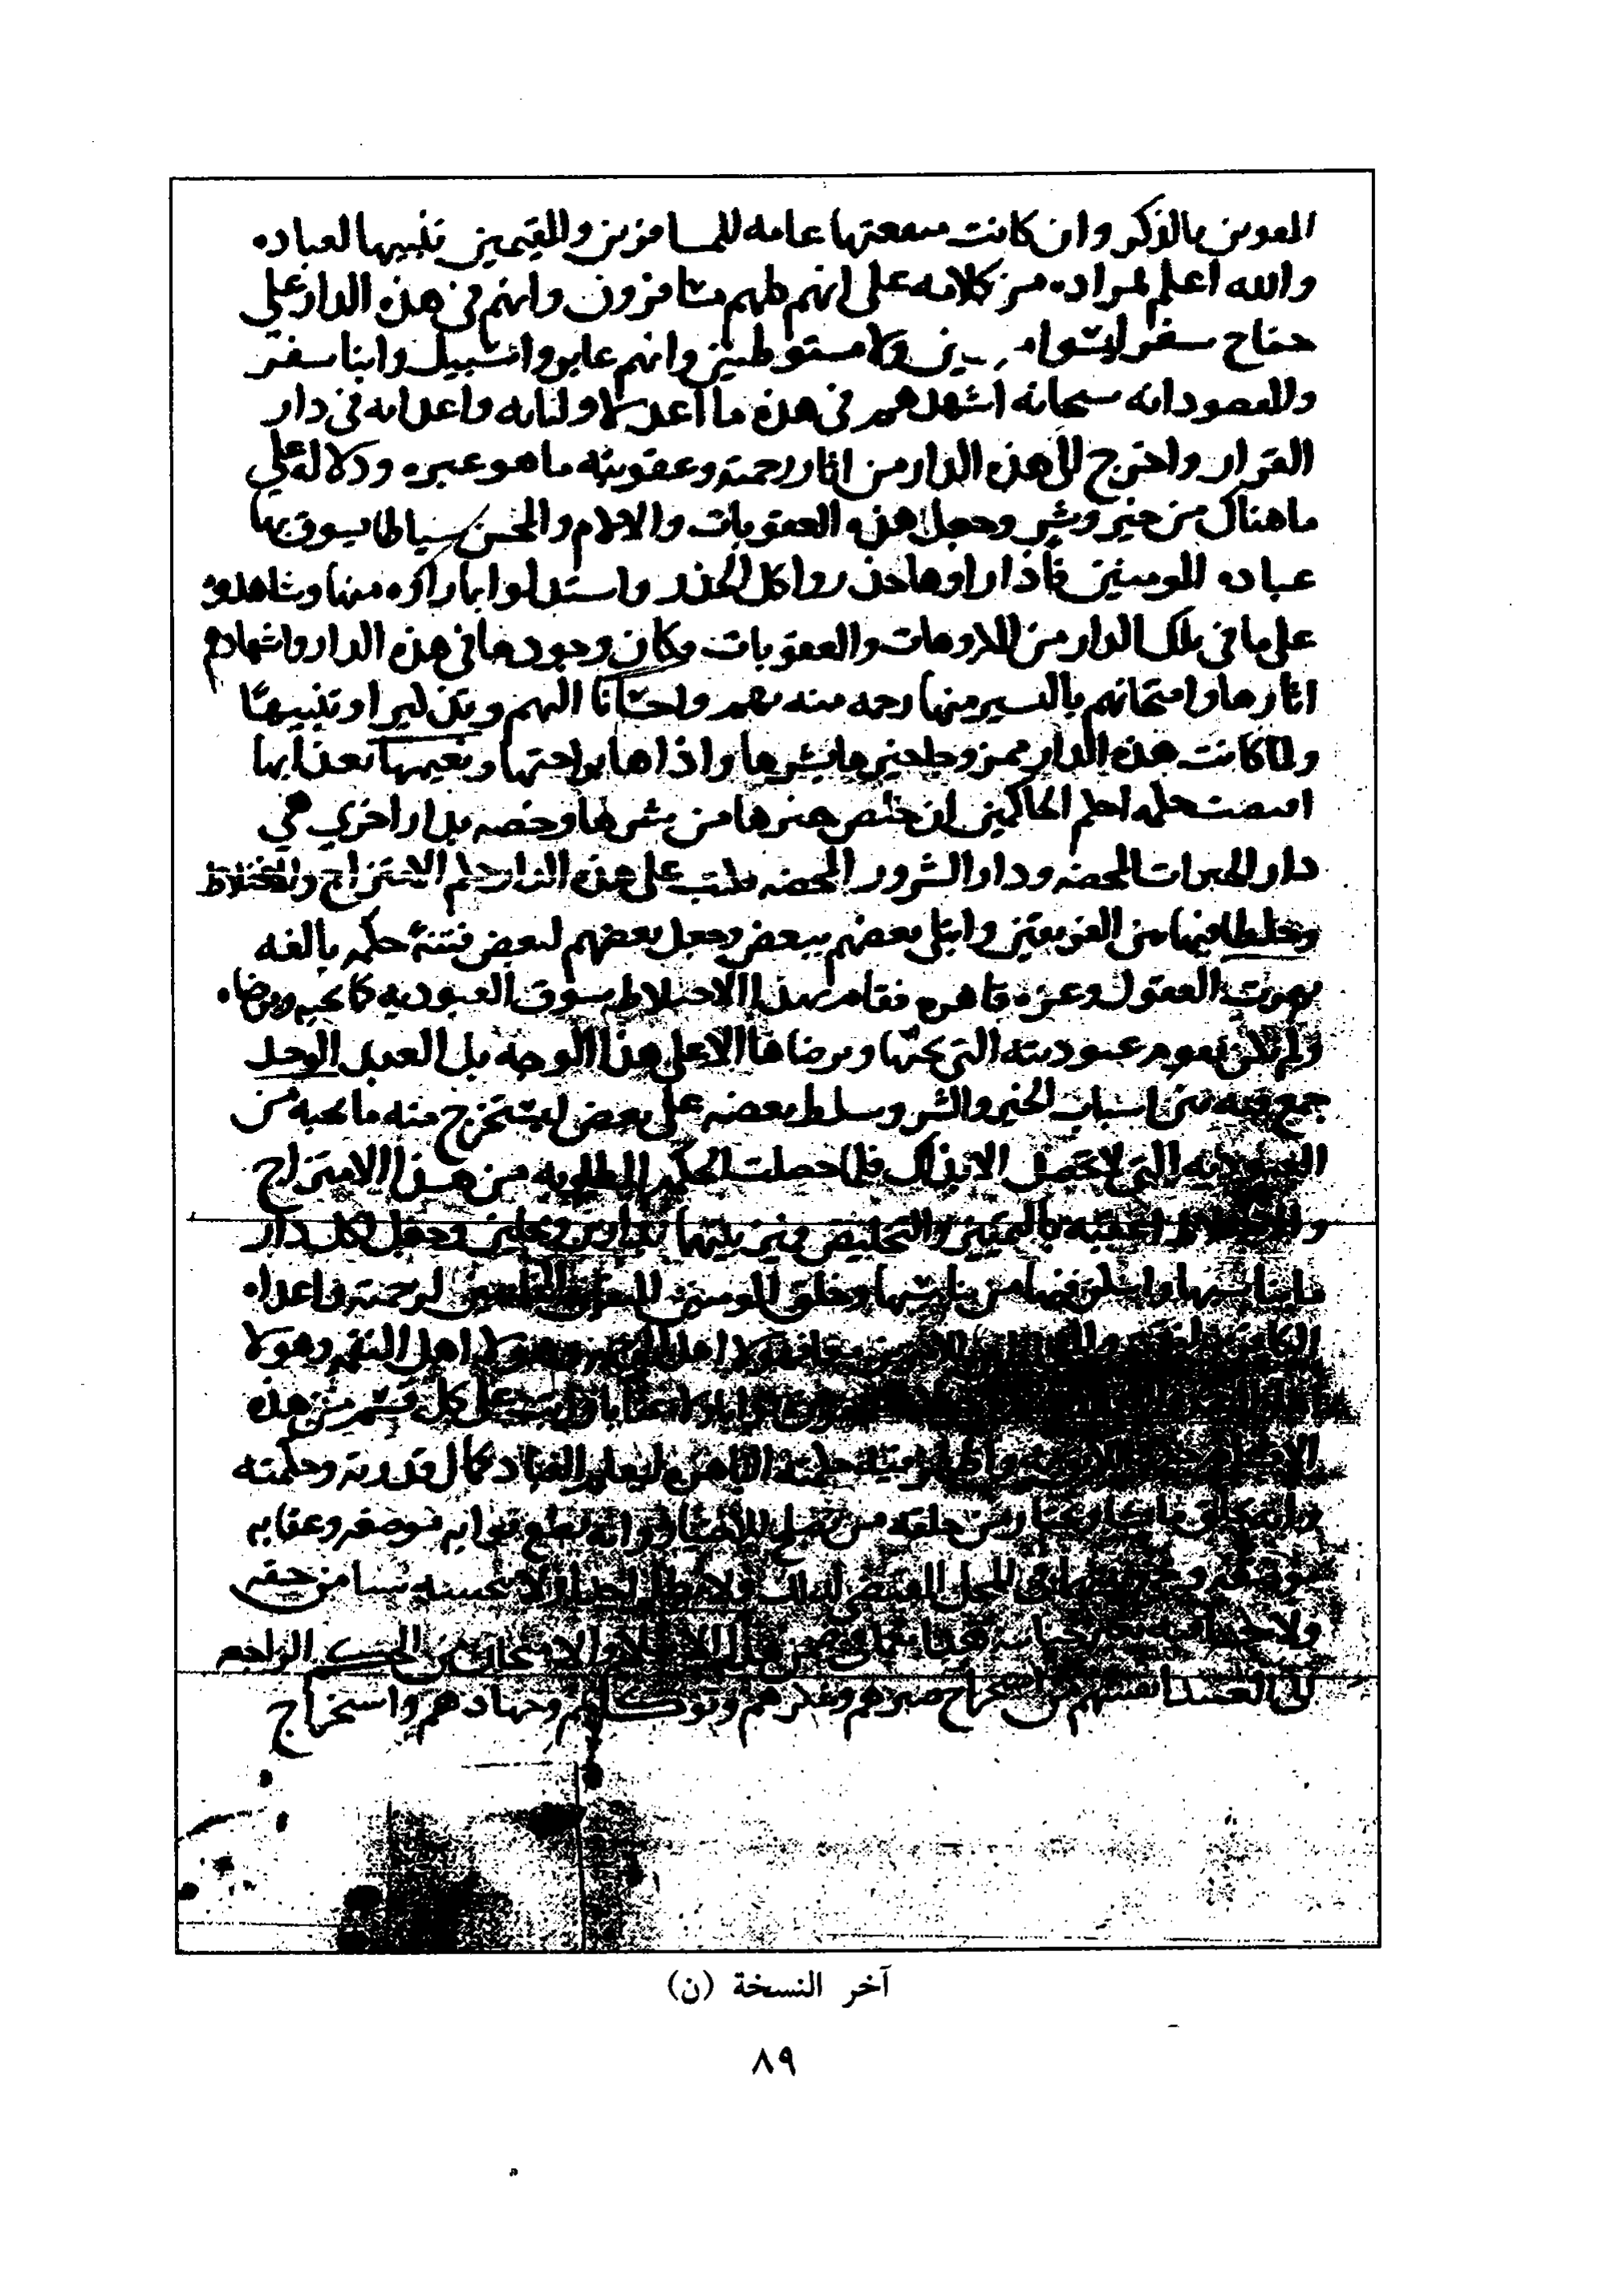 المقوين بالذكر وان كانت منفعتها عامه للمسافرين والمقيمين تنبيها لعباده
والله اعلم بمراده من كلامه على انهم كلهم مسافرون وانهم في هذه الدار على
جناح سفر ليسوا ولا مستوطنين وانهم عابروا سبيل وابنا سفر
والمقصود انه سبحانه اشهدهم في هذه ما اعد لاوليائه واعدائه في دار
القرار واخرج الى هذه الدار من اثار رحمته وعقوبته ما هو عبره ودلاله على
ما هناك من خير وشر وجعل هذه العقوبات والالام والمحن سياطا يسوق بها
عباده المومنين فاذا راوها حذروا كل الحذر واستدلوا بما راوه منها وشاهدوه
على ما في تلك الدار من المكروهات والعقوبات وكان وجودها في هذه الدار واشهادهم
اثارها وامتحانهم باليسير منها رحمه منه بهم واحسانا اليهم وتذكيرا وتنبيها
ولما كانت هذه الدار ممزوجا خيرها بشرها واذاها براحتها ونعيمها بعذابها
اقتضت حكمه احكم الحاكمين ان خلص خيرها من شرها وخصه بدار اخرى هي
دار الخيرات المحضه ودار الشرور المحضه فكتب على هذه الدار حكم الامتزاج والاختلاط
وخلط فيها بين الفريقين وابتلى بعضهم ببعض وجعل بعضهم لبعض فتنة حكمه بالغه
بهرت العقول وعزه قاهره فقام بهذا الاختلاط سوق العبوديه كما يحبه ويرضاه
ولم تكن تقوم عبوديته التي يحبها ويرضاها الا على هذا الوجه بل العبد الواحد
جمع فيه بين اسباب الخير والشر وسلط بعضه على بعض ليستخرج منه ما يحبه من
العبوديه التي لا تحصل الا بذلك فلما حصلت الحكمه المطلوبه من هذا الامتزاج
والاختلاط اعقبه بالتمييز والتخليص فميز بينهما بدارين ومحلين وجعل لكل دار
ما يناسبها واسكن فيها من يناسبها وخلق المومنين لرحمته واعداه
الكافرين اهل النقمه وهولا
على كل قسم من هذه
ليعلم العباد كمال قدرته وحكمته
وانه يخلق ما يشا ويختار من خلقه من يصلح للاختيار وانه يضع ثوابه موضعه وعقابه
موضعه المحل المقتضي لذلك ولا يظلم احدا ولا يبخسه شيئا من حقه
ولا يعاقبه بغير جنايته هذا مع ما في ضمن هذا الابتلا والامتحان من الحكم الراجعه
الى العبيد انفسهم من استخراج صبرهم وشكرهم وتوكلهم وجهادهم واستخراج
آخر النسخة (ن)
٨٩